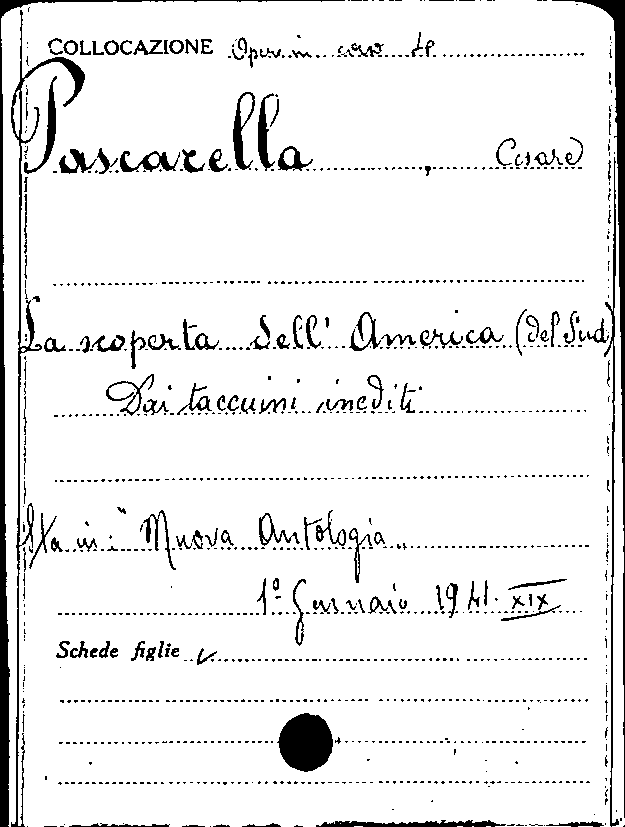 COLLOCAZIONE Oper. in corso
Pascarella, Cesare
La scoperta dell' America (del Sud)
Dai taccuini inediti
Sta in: "Nuova Antologia"
1º Gennaio 1941. XIX
Schede figlie